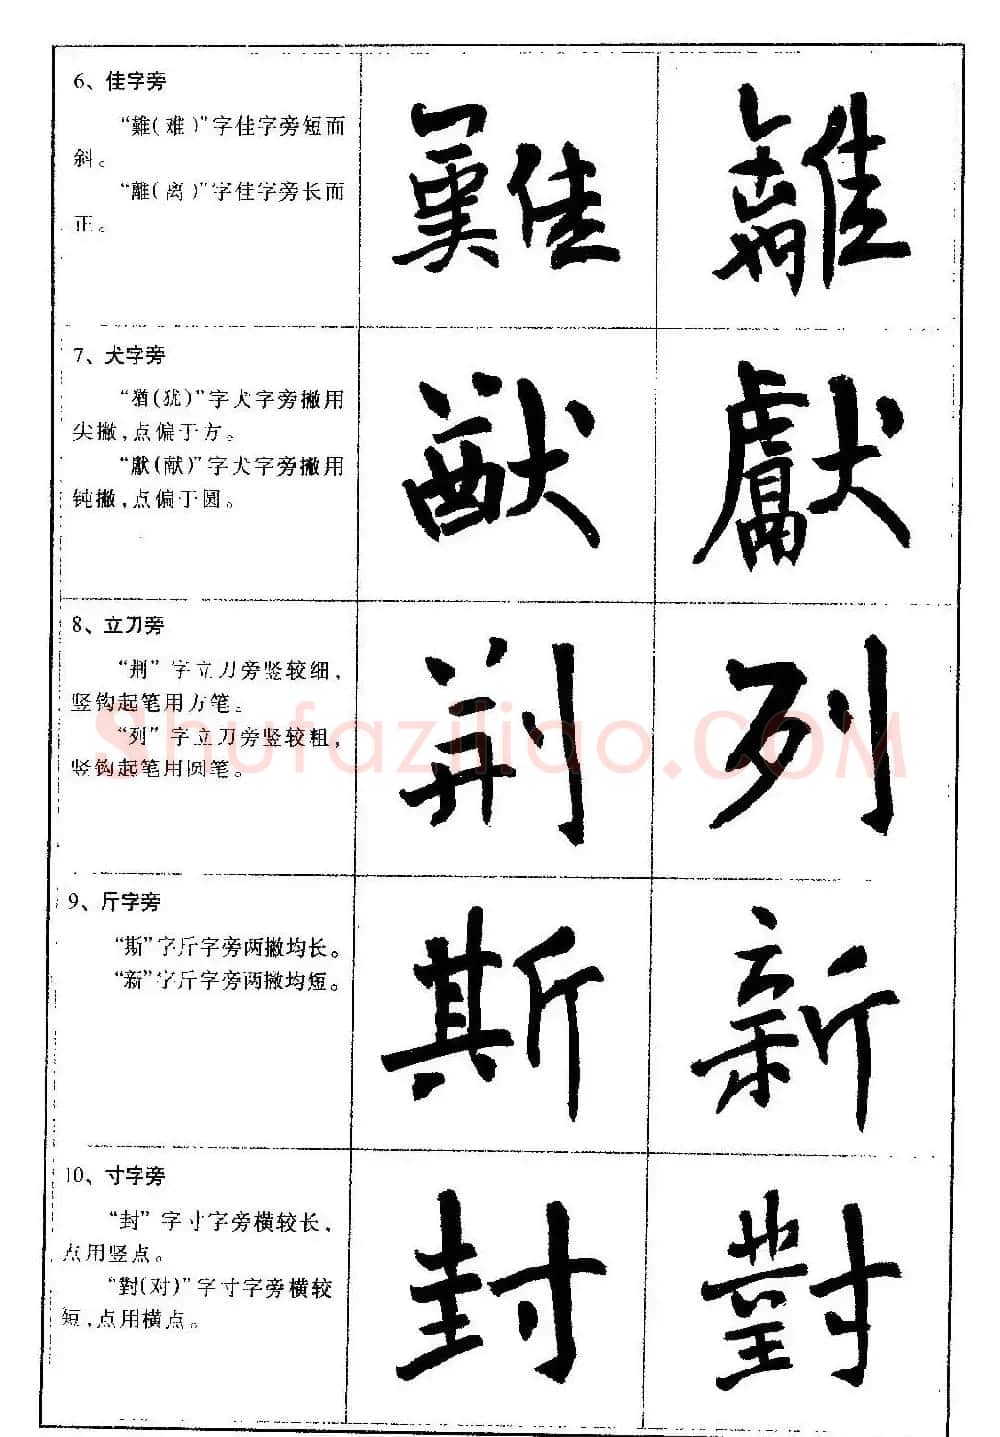 6、佳字旁
“難(难)”字佳字旁短而
斜。
“離(离)”字佳字旁长而
正。
難 離
7、犬字旁
“猶(犹)”字犬字旁撇用
尖撇,点偏于方。
“獻(献)”字犬字旁撇用
钝撇,点偏于圆。
猷 獻
8、立刀旁
“荆”字立刀旁竖较细,
竖钩起笔用方笔。
“列”字立刀旁竖较粗,
竖钩起笔用圆笔。
荆 列
Shufaziliao.COM
9、斤字旁
“斯”字斤字旁两撇均长。
“新”字斤字旁两撇均短。
斯 新
10、寸字旁
“封”字寸字旁横较长,
点用竖点。
“對(对)”字寸字旁横较
短,点用横点。
封 對